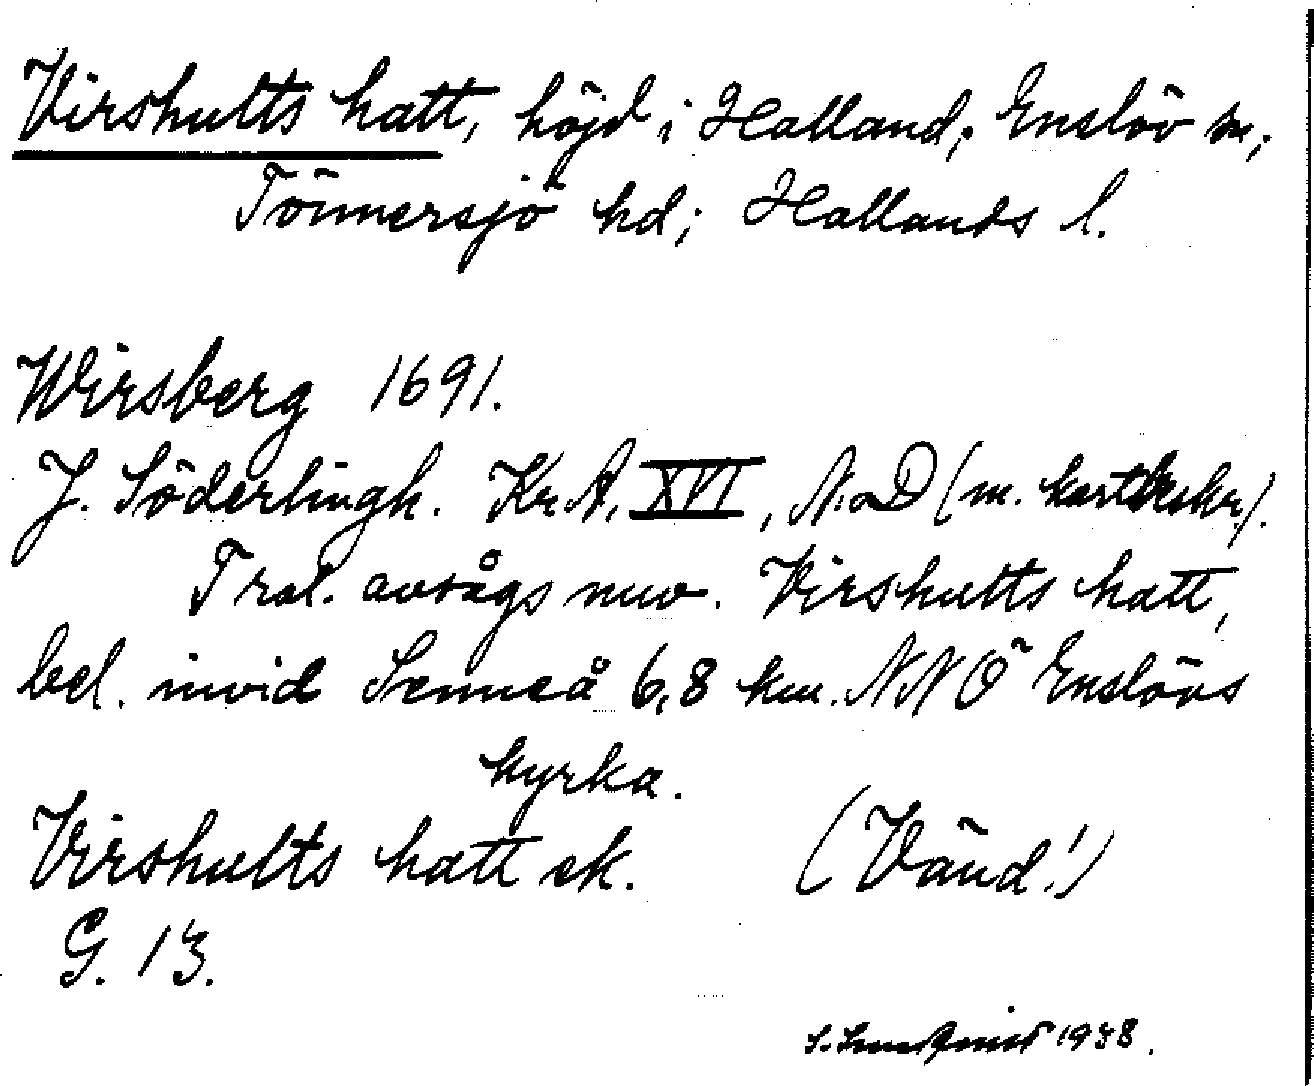 Virshults hatt, höjd i Halland, Enslöv sn,
Tönnersjö hd; Hallands l.
Wirsberg 1691.
J. Söderlingh. Kr. A. XVI, N. D (m. kartbeskr.).
Trol. avsågs nuv. Virshults hatt,
bel. invid Senneå 6,8 km. NNÖ Enslövs
kyrka.
Virshults hatt ek. (Vänd!)
G. 13.
S. 1938.